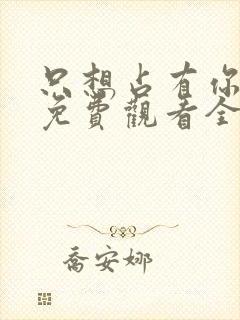 只想占有你
免費觀看全
喬安娜